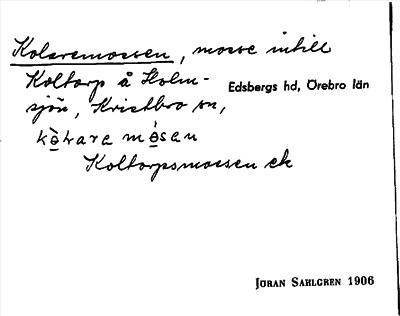 Kolaremossen, mosse intill
Koltorp å Holm-
sjön, Kristbro sn,
Edsbergs hd, Örebro län
kò̠lɩara mó̠san
Koltorpsmossen ek
JÖRAN SAHLGREN 1906